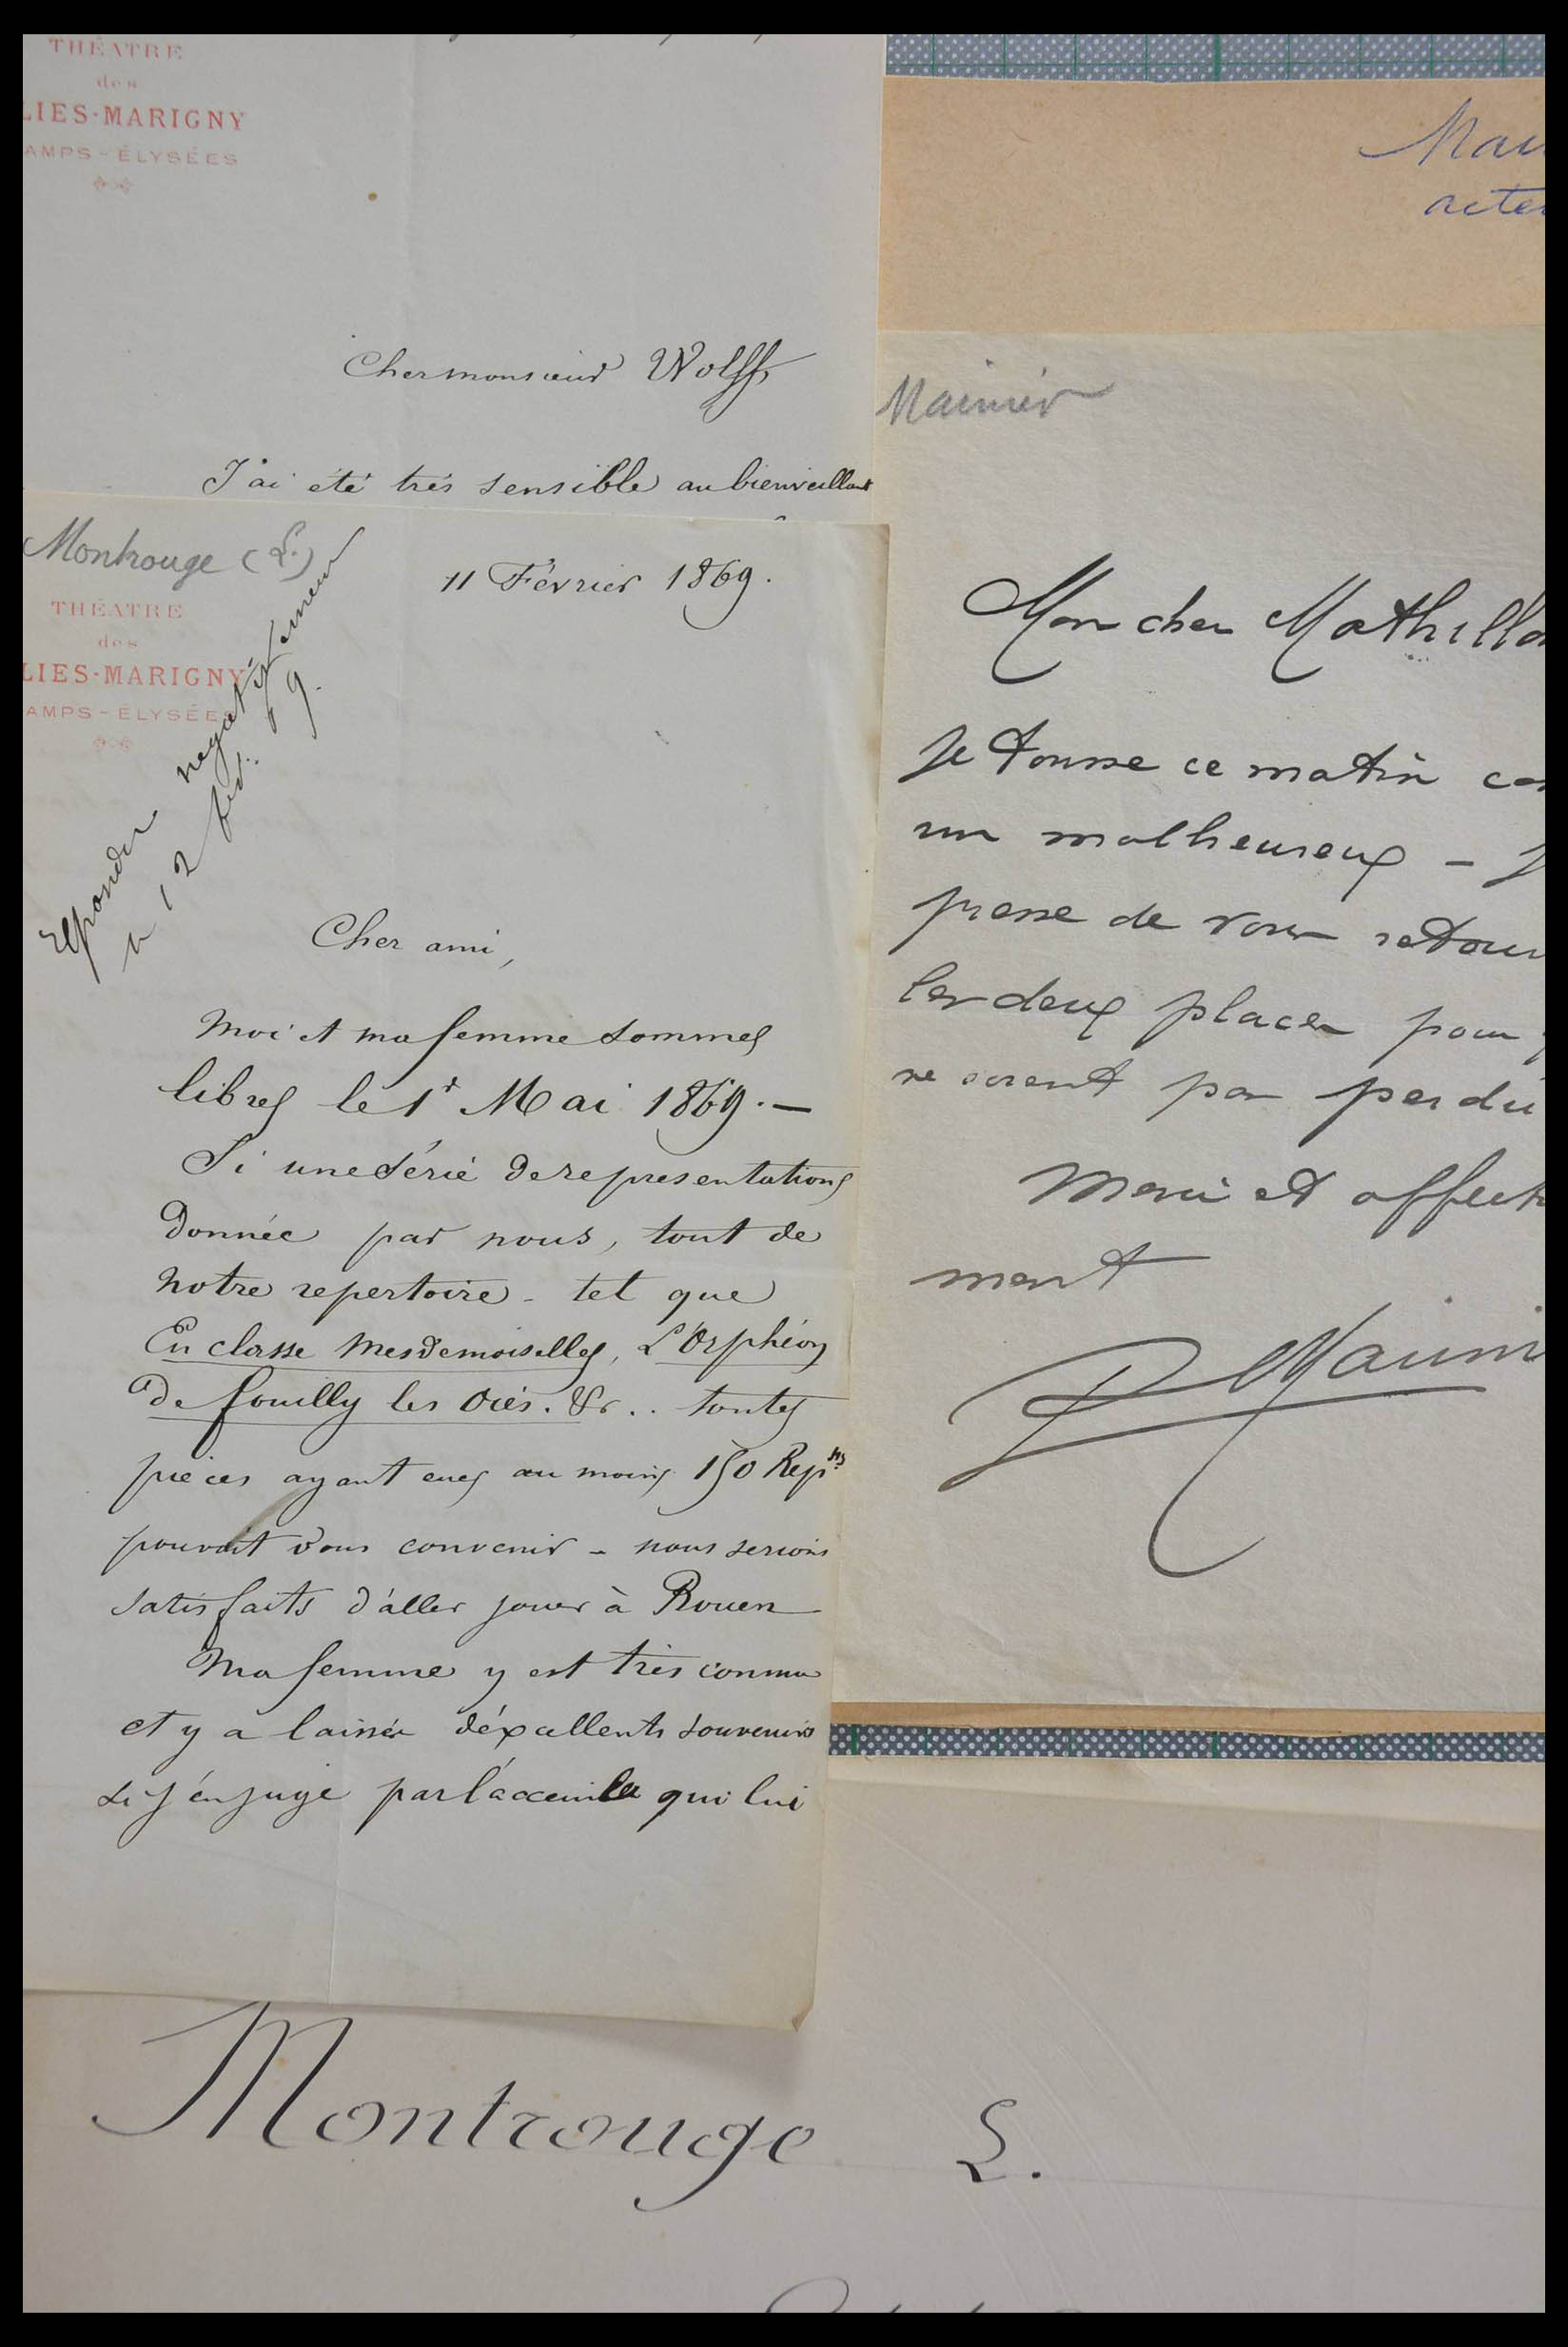 THÉATRE
des
LIES-MARIGNY
AMPS-ÉLYSÉES
Cher monsieur Wolff,
J'ai été trés sensible au bienveillant
Montrouge (L.)
11 Février 1869.
THÉATRE
des
LIES-MARIGNY
AMPS-ÉLYSÉE
négativement
le 12 fév. 9.
Cher ami,
Moi et ma femme sommes
libres le 1r Mai 1869. —
Si une série de representations
donnée par nous, tout de
notre repertoire - tel que
En classe Mesdemoiselles, L'Orphéon
de fouilly les Oies. &c.. toutes
pièces ayant eues au moins 150 Repns
pouvait vous convenir - nous serions
satisfaits d'aller jouer à Rouen
Ma femme y est très connue
et y a laissée d'éxcellents souvenirs
si j'en juge par l'acceuil qui lui
Montrouge L.
Mau
acteu
Mon cher Mathillo
Je tousse ce matin co
un malheureux - J
presse de vous retour
les deux places pour
ne soient pas perdu
Merci et affectu
ment